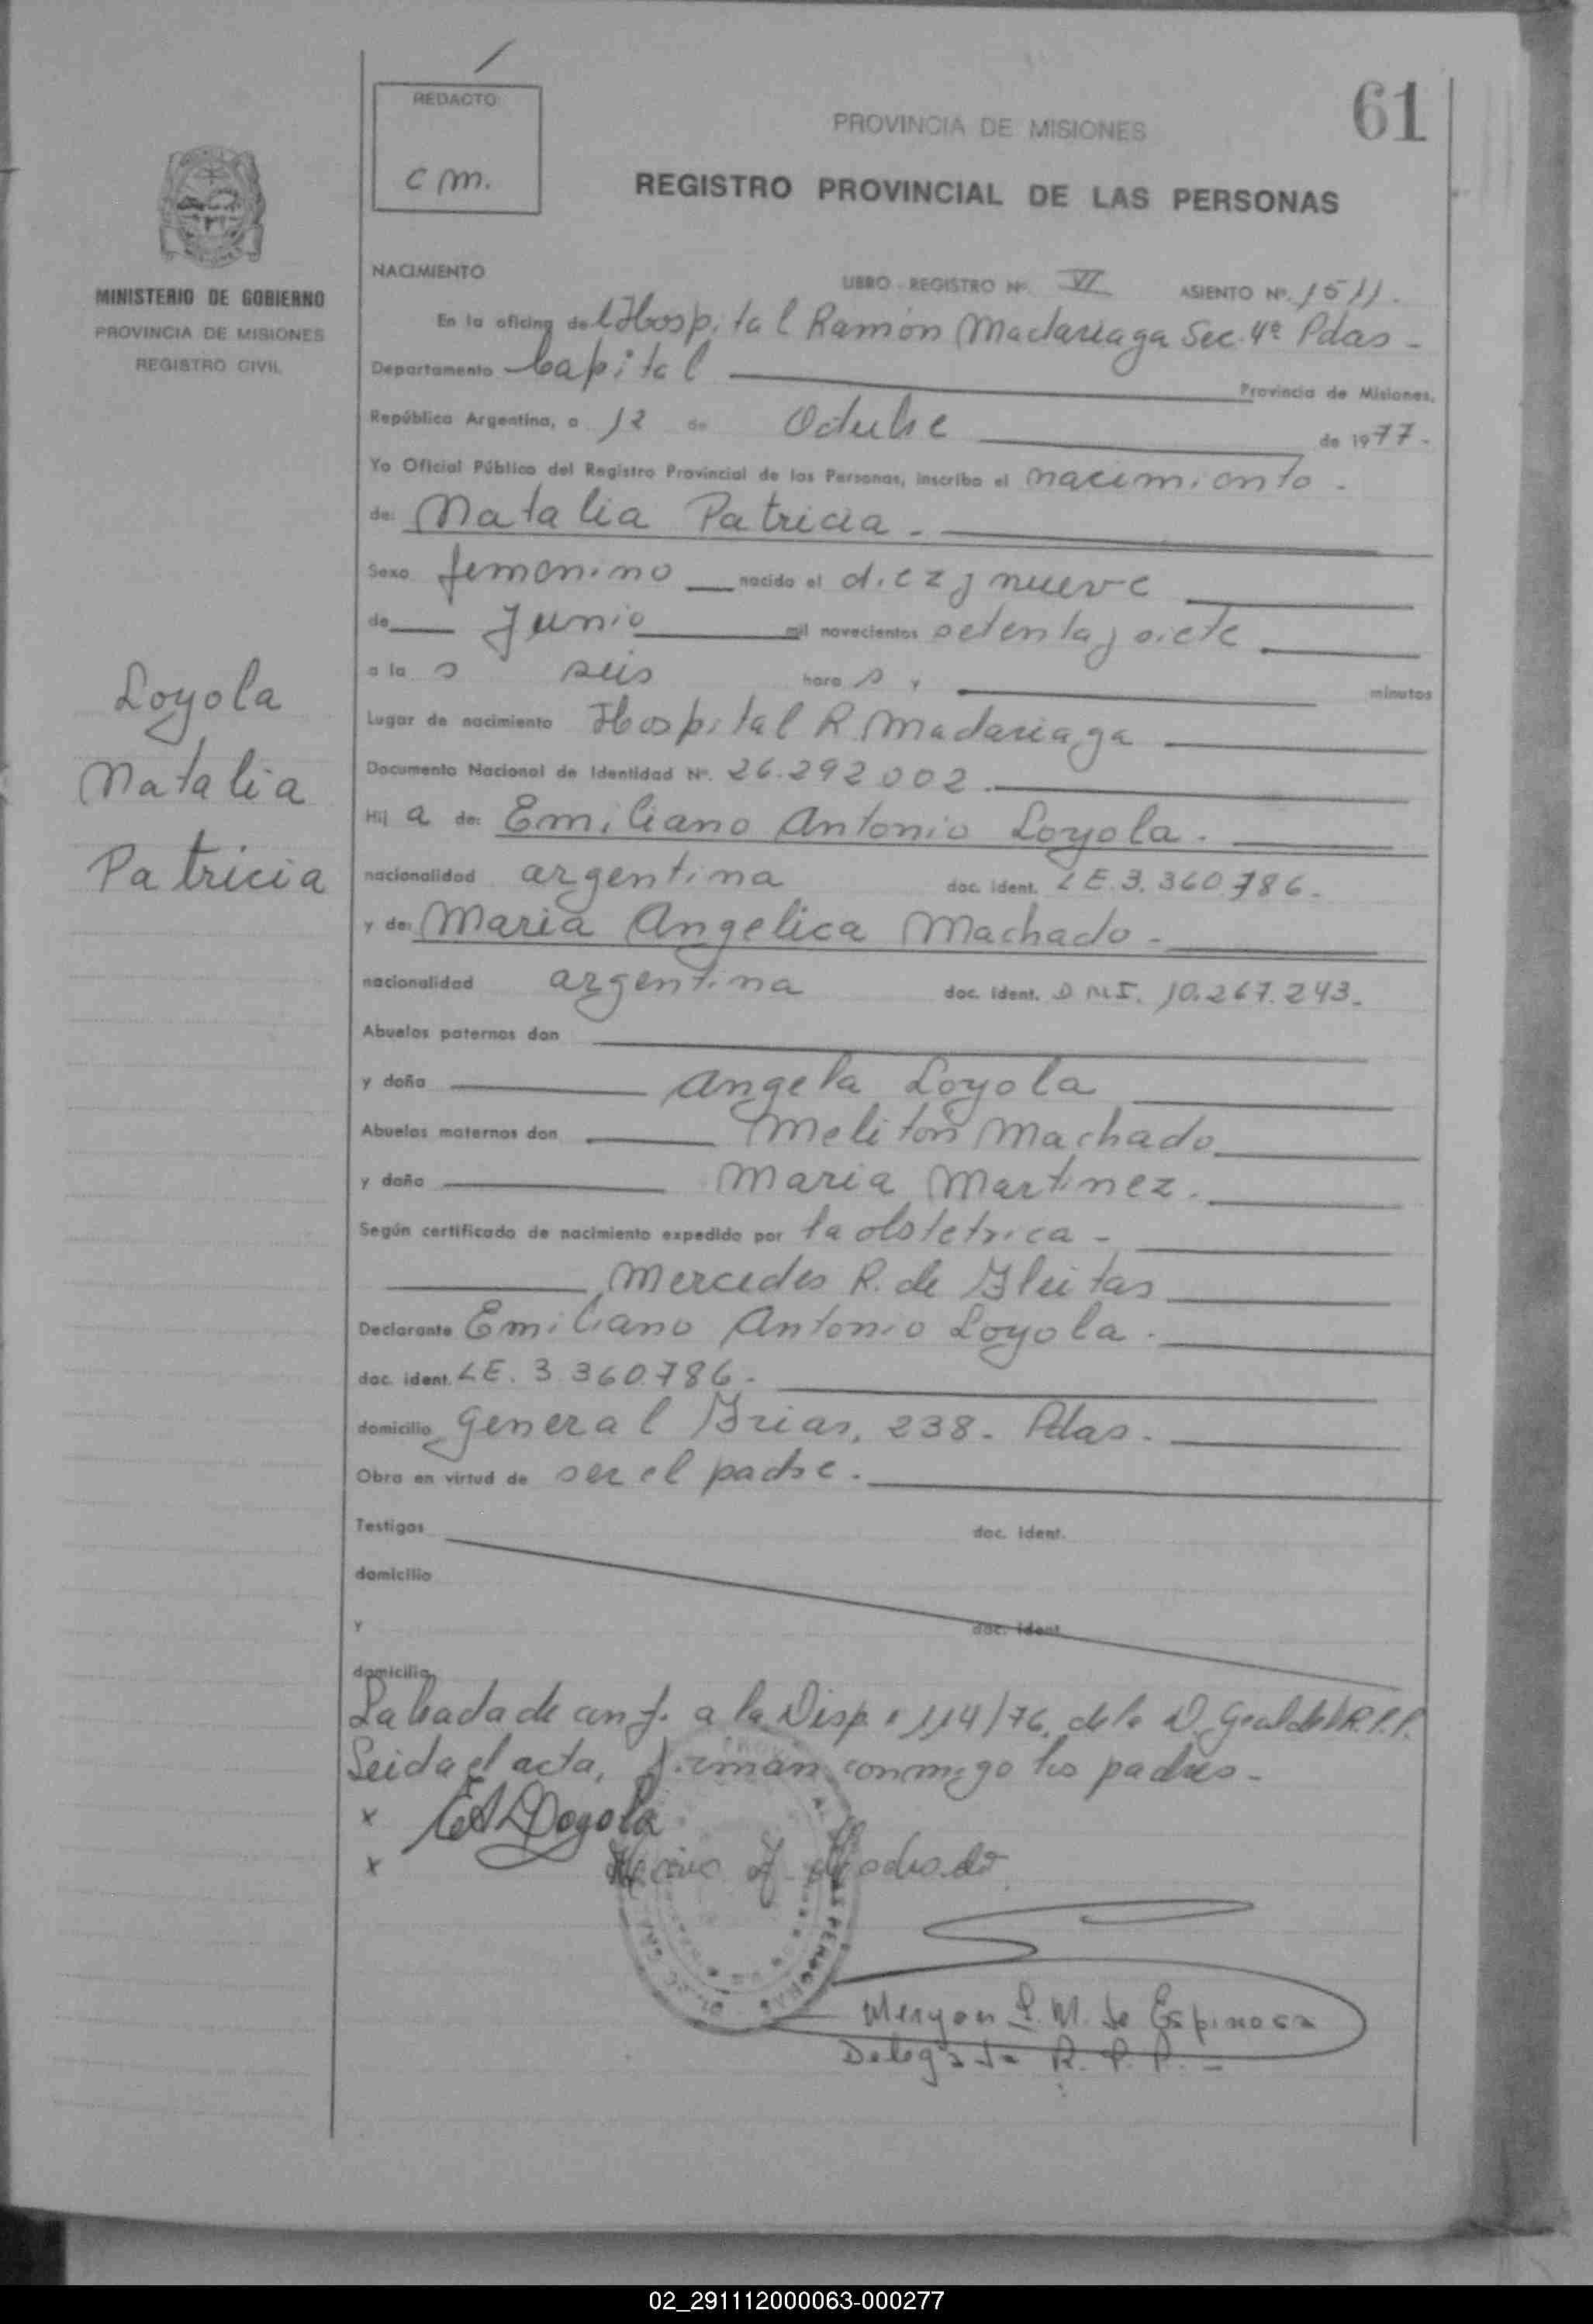 REDACTO
cm.
PROVINCIA DE MISIONES
61
REGISTRO PROVINCIAL DE LAS PERSONAS
MINISTERIO DE GOBIERNO
PROVINCIA DE MISIONES
REGISTRO CIVIL
NACIMIENTO
LIBRO - REGISTRO Nº. VI ASIENTO Nº. 1511.
En la oficina del Hospital Ramón Madariaga Sec. 4º Pdas -
Departamento Capital Provincia de Misiones.
República Argentina, a 12 de Octubre de 1977.
Yo Oficial Público del Registro Provincial de las Personas, inscribo el nacimiento.
de: Natalia Patricia.
Sexo femenino nacido el diez y nueve
de Junio mil novecientos setenta y siete
a la s seis hora s y minutos
Loyola
Natalia
Patricia
Lugar de nacimiento Hospital R. Madariaga
Documento Nacional de Identidad Nº. 26.292002.
Hij a de: Emiliano Antonio Loyola.
nacionalidad argentina doc. ident. LE. 3.360.786.
y de: Maria Angelica Machado -
nacionalidad argentina doc. ident. DNI. 10.267.243.
Abuelos paternos don
y doña Angela Loyola
Abuelos maternos don Meliton Machado
y doña Maria Martinez.
Según certificado de nacimiento expedido por la obstetrica -
Mercedes R. de Gleitas
Declarante Emiliano Antonio Loyola.
doc. ident. LE. 3.360.786.
domicilio General 238. Pdas.
Obra en virtud de ser el padre.
Testigos doc. ident.
domicilio
y doc. ident.
domicilio
Labrada de conf. a la Disp. 114/76, de la D. Gral del R.P.P.
Leida el acta, firman conmigo los padres.
x EALoyola
x Machado
PERSONAS
M. de Espinosa
Delegada R.P.P. -
02_291112000063-000277